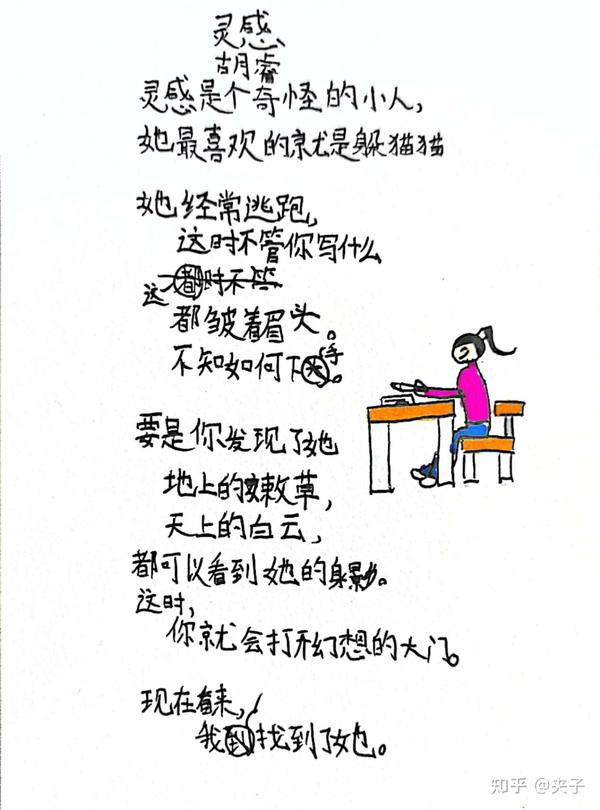 灵感
胡睿
灵感是个奇怪的小人，
她最喜欢的就是躲猫猫
她经常逃跑，
这时不管你写什么
这都时不管
都皱着眉头。
不知如何下手。
要是你发现了她
地上的嫩草，
天上的白云，
都可以看到她的身影。
这时，
你就会打开幻想的大门。
现在看来，
我到找到了她。
知乎 @夹子